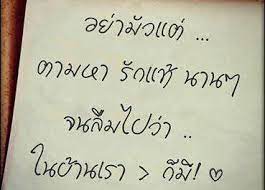 อย่ามัวแต่ ...
ตามหา รักแท้ นานๆ
จนลืมไปว่า ..
ในบ้านเรา > ก็มี! ♡